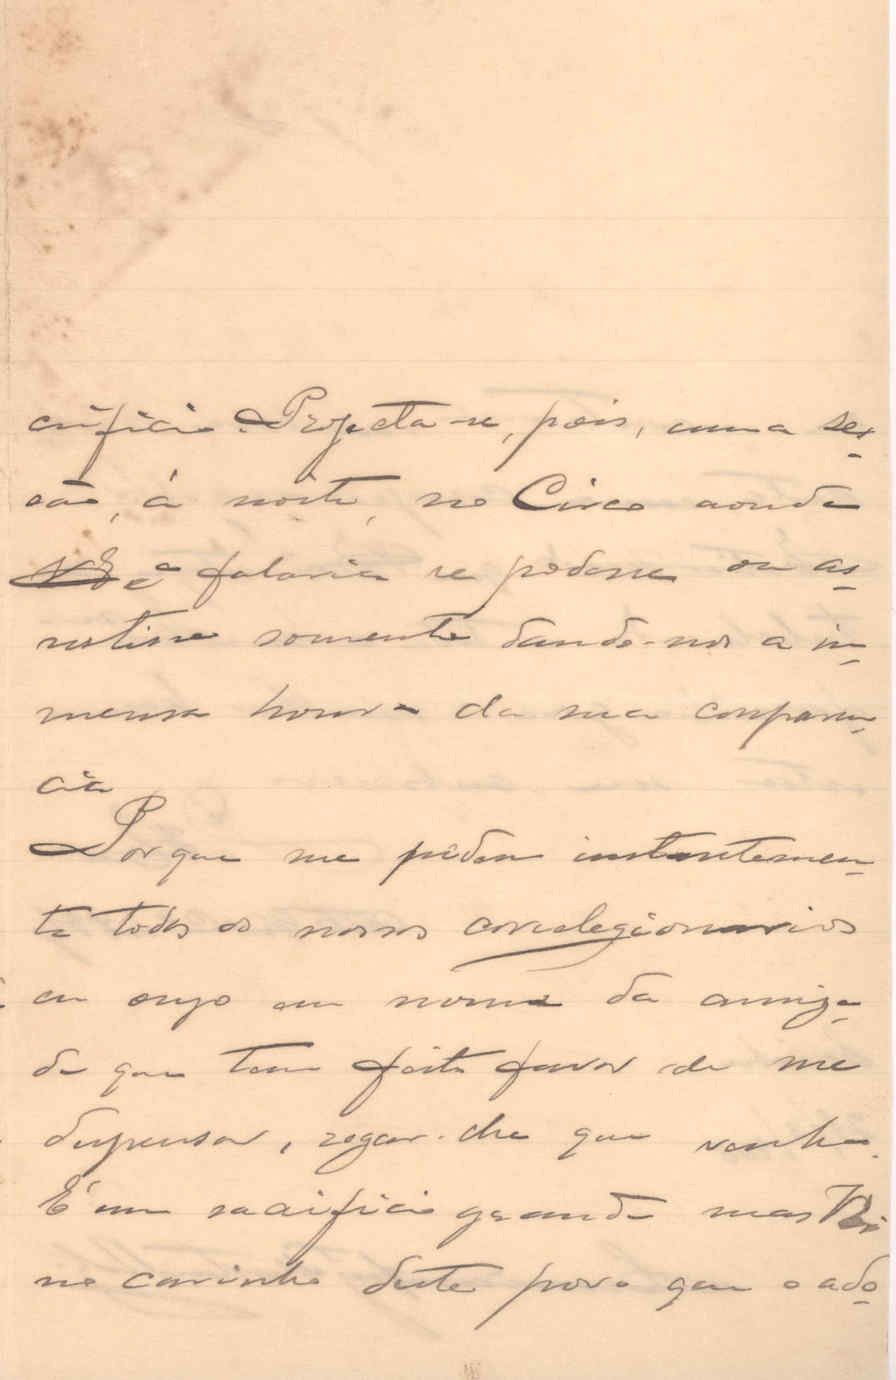 crificio. Projecta-se, pois, uma ses-
são, á noite, no Circo aonde
V Ex.ª falaria se podesse ou as-
sistisse somente dando-nos a im-
mensa honra da sua comparen-
cia
Porque me pedem instantemen-
te todos os nossos correlegionarios
eu ouso em nome da amiza-
de que tem feito favor de me
dispensar, rogar-lhe que venha.
É um sacrificio grande mas
no carinho deste povo que o ado-